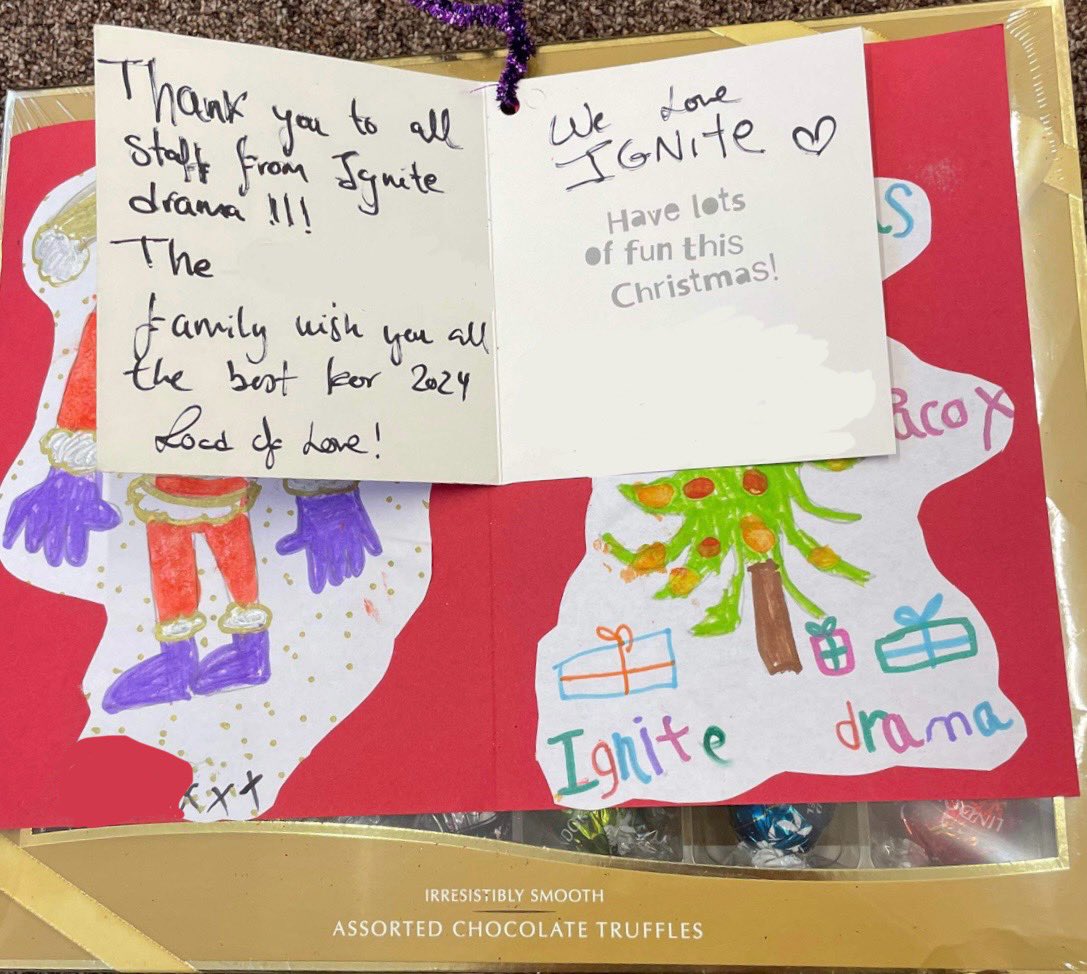 Thank you to all
staff from Ignite
drama !!!
The
family wish you all
the best for 2024
Load of Love!
We Love
IGNITE
Have lots
of fun this
Christmas!
AS
aco X
Ignite drama
xxx
IRRESISTIBLY SMOOTH
ASSORTED CHOCOLATE TRUFFLES